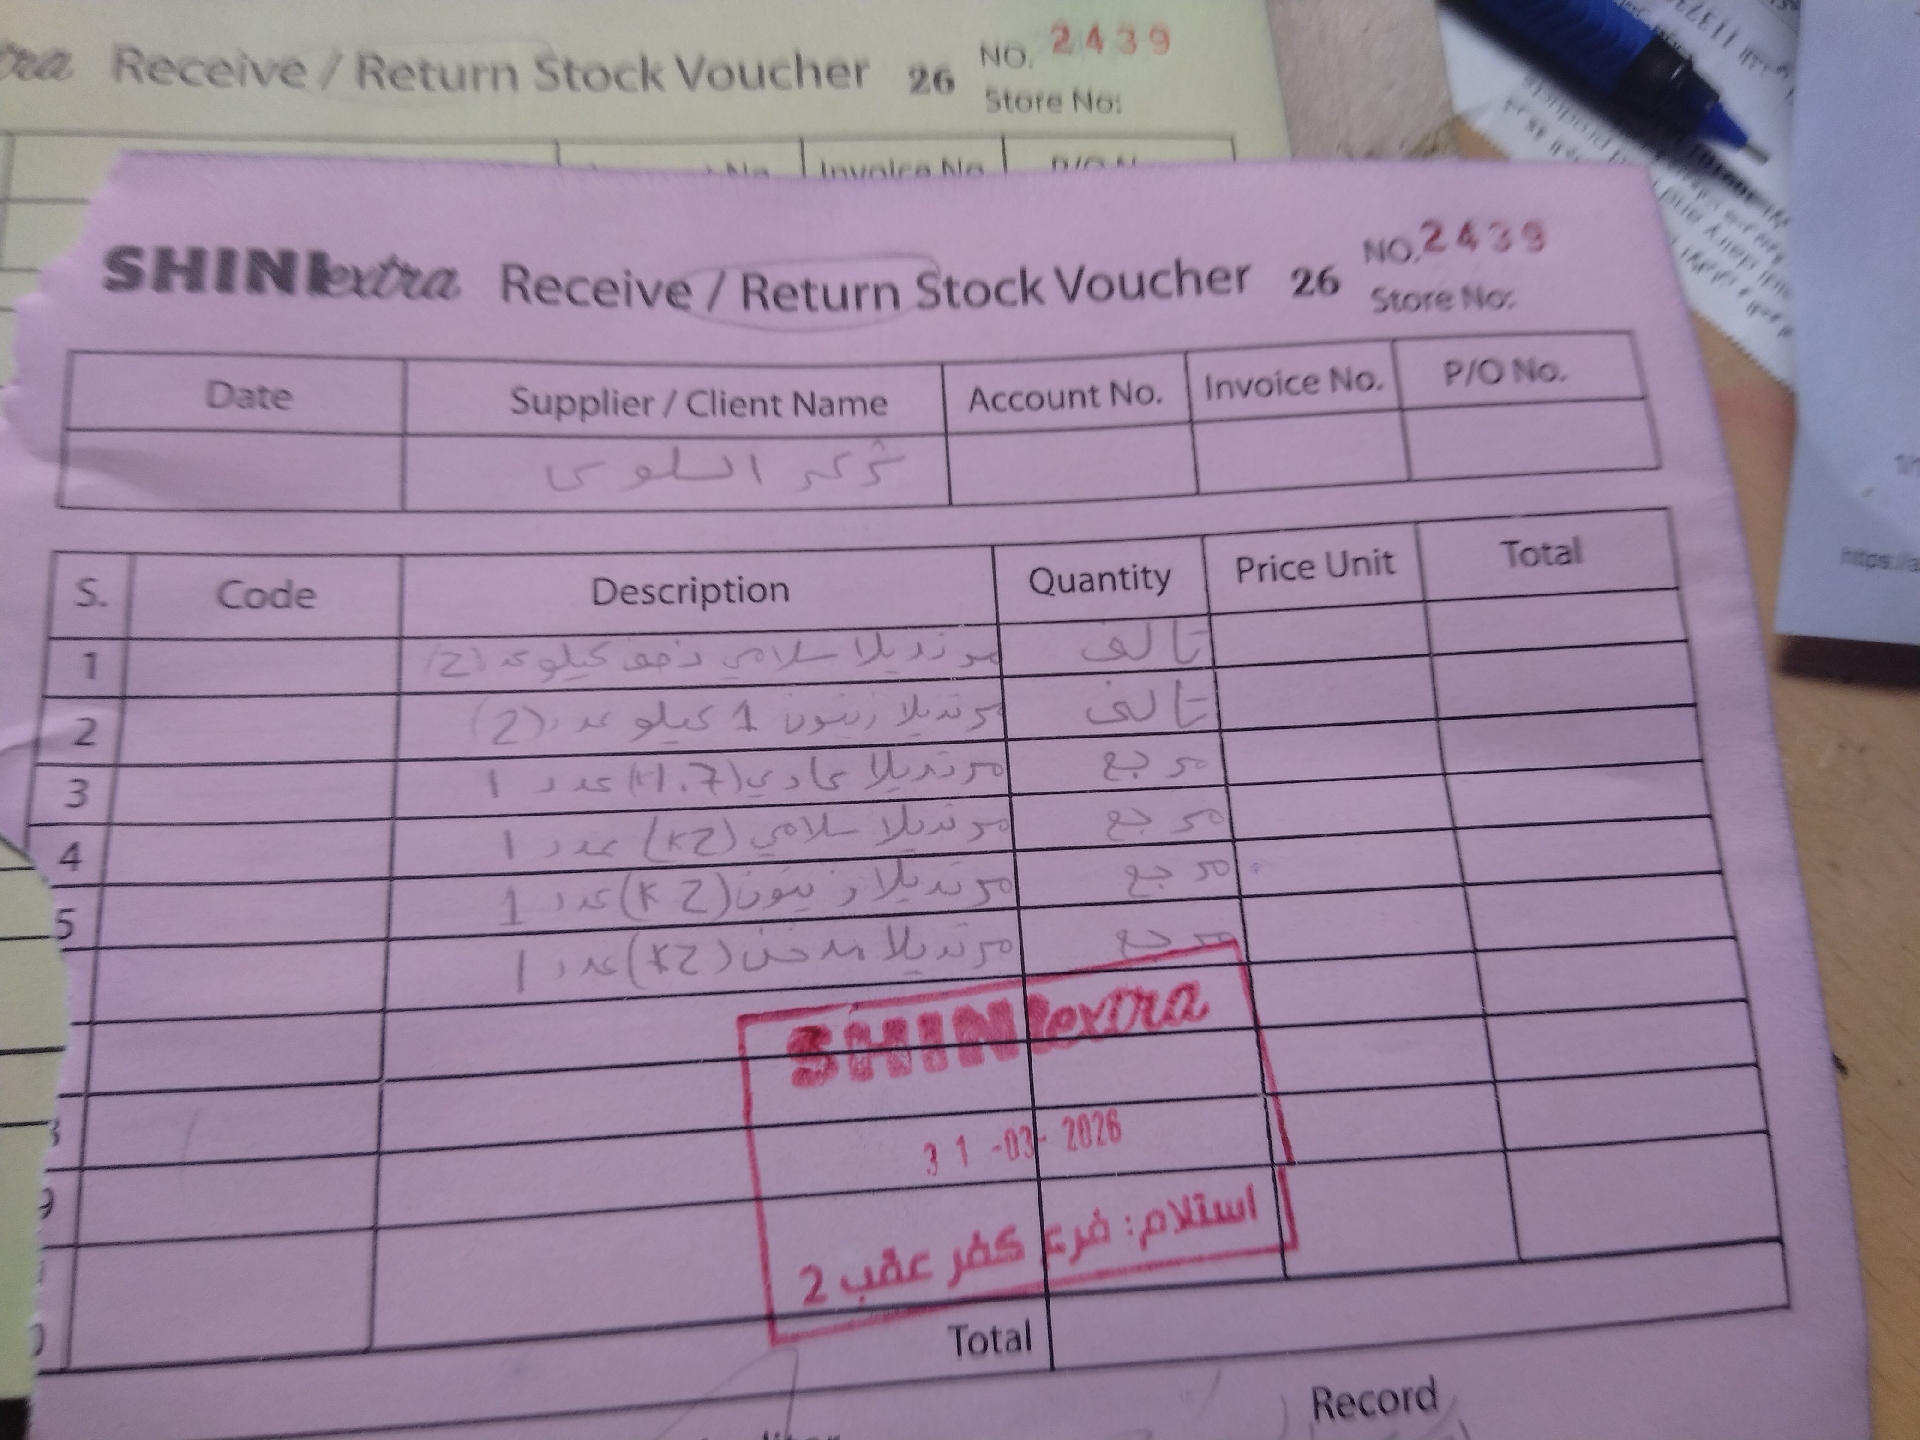 Receive / Return Stock Voucher 26 NO. 2439
Store No:
Invoice No
SHINI extra Receive / Return Stock Voucher 26 NO. 2439
Store No:
Date Supplier / Client Name Account No. Invoice No. P/O No.
S. Code Description Quantity Price Unit Total
1 مرتديلا سلامي نصف كيلو عدد (2) تالف
2 مرتديلا زيتون 1 كيلو عدد (2) تالف
3 مرتديلا عادي عدد 1 مرجع
4 مرتديلا سلامي (2K) عدد 1 مرجع
5 مرتديلا زيتون (2K) عدد 1 مرجع
مرتديلا مدخن (2K) عدد 1 مرجع
SHINI extra
31-03-2026
استلام: فرع كفر عقب 2
9
Total
Record